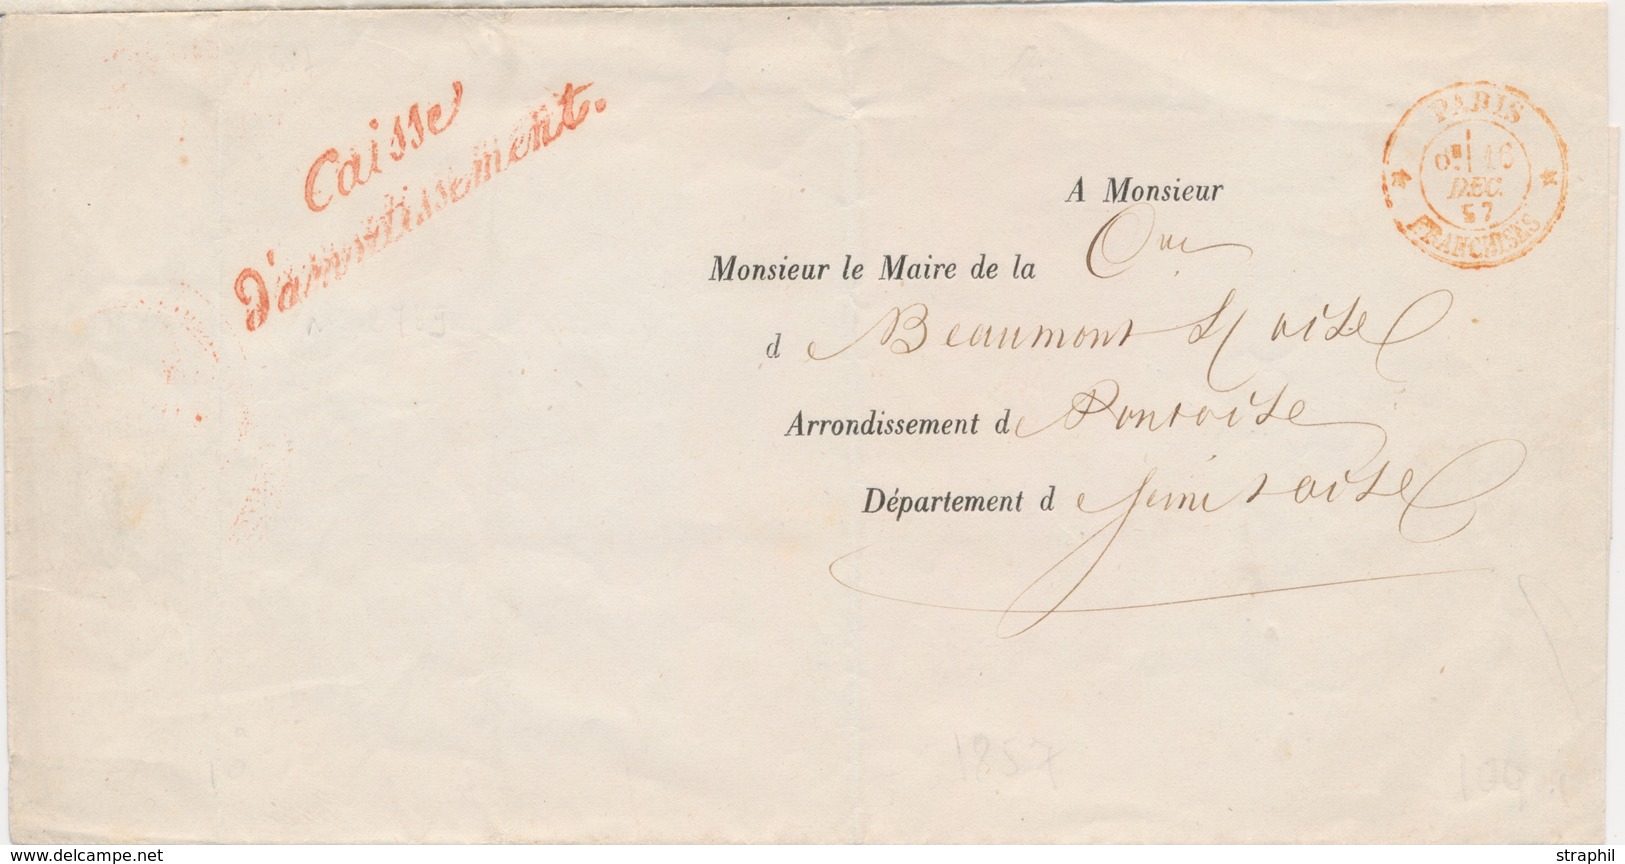 Caisse
D'amortissement.
PARIS
16
DEC.
57
FRANCHISES
A Monsieur
Monsieur le Maire de la Cne
d Beaumont s/ oise
Arrondissement d Pontoise
Département d Seine & oise
1857
www.delcampe.net
straphil